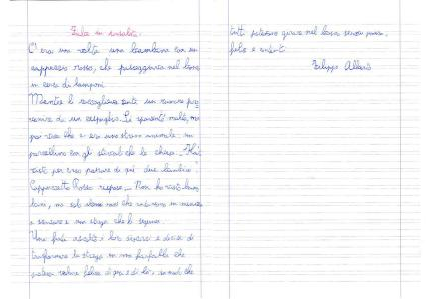 Fiaba in insalata.
C'era una volta una bambina con un
cappuccio rosso, che passeggiava nel bosco
in cerca di lamponi.
Mentre li raccoglieva sentì un rumore pro
venire da un cespuglio. Si spaventò molto, ma
poi vide che era uno strano animale un
porcellino con gli stivali che le chiese: -Hai
visto per caso passare di qui due bambini?
Cappuccetto Rosso rispose: - Non ho visto bam
bini, ma solo nani che
e una strega che li seguiva.
Una fata ascoltò i loro discorsi e decise di
trasformare la strega in una farfalla che
poteva volare felice di qua e di là, in modo che
tutti potessero girare nel bosco senza paura,
felici e contenti.
Filippo Alberti